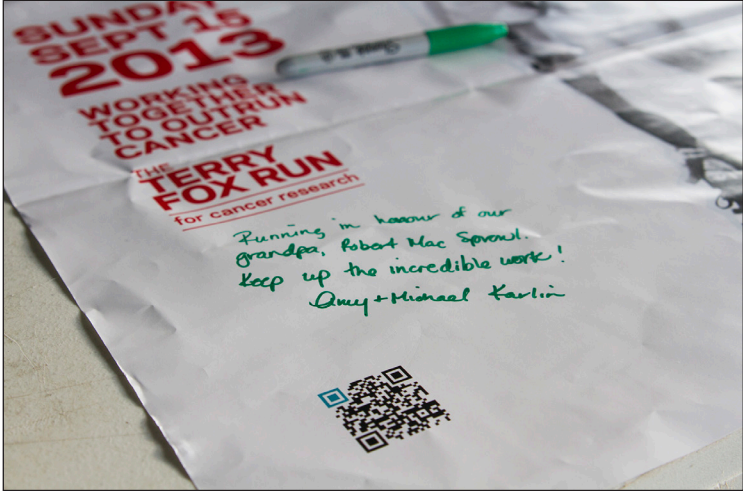 SUNDAY
SEPT 15
2013
WORKING
TOGETHER
TO OUTRUN
CANCER
THE
TERRY
FOX RUN
for cancer research
Running in honour of our
grandpa, Robert Mac Sprowl.
Keep up the incredible work!
Amy + Michael Karlin
Sharpie